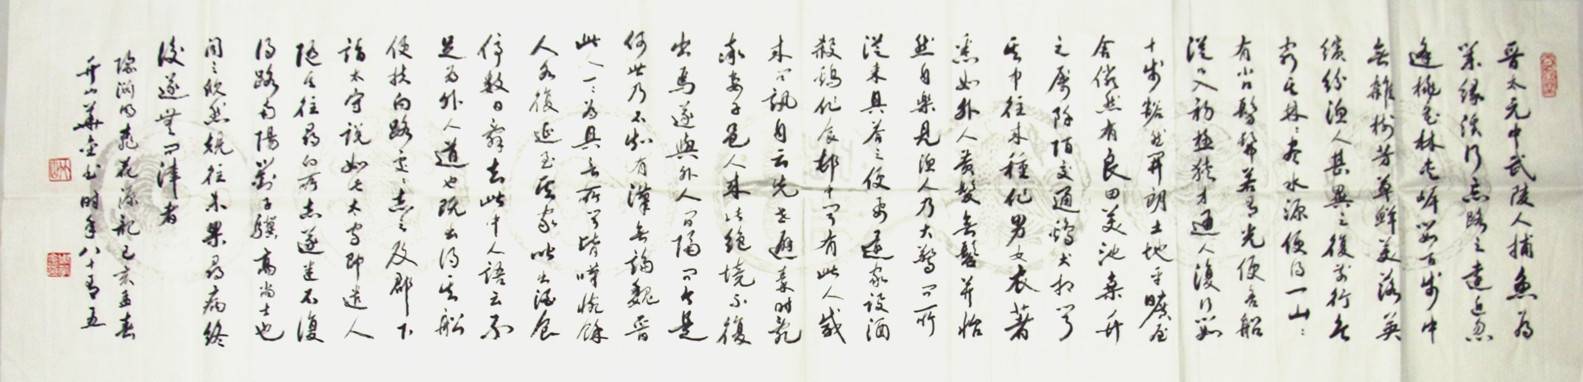 晋太元中武陵人捕魚為
業缘溪行忘路之遠近忽
逢桃花林夹岸数百步中
無雜樹芳草鮮美落英
缤纷渔人甚異之復前行欲
穷其林林尽水源便得一山山
有小口髣髴若有光便舍船
從口入初極狭才通人復行数
十步豁然開朗土地平曠屋
舍俨然有良田美池桑竹
之属阡陌交通鷄犬相闻
其中往来種作男女衣著
悉如外人黄髮垂髫并怡
然自樂見渔人乃大驚问所
從来具答之便要還家设酒
殺鷄作食村中闻有此人咸
来问訊自云先世避秦时乱
率妻子邑人来此絶境不復
出焉遂與外人间隔问今是
何世乃不知有漢無論魏晋
此人一一为具言所闻皆嘆惋餘
人各復延至其家皆出酒食
停数日辞去此中人語云不
足为外人道也既出得其船
便扶向路处处志之及郡下
詣太守说如此太守即遣人
随其往尋向所志遂迷不復
得路南陽劉子驥高尚士也
闻之欣然規往未果尋病终
後遂無问津者
陶渊明桃花源記己亥孟春
书时年八十有五